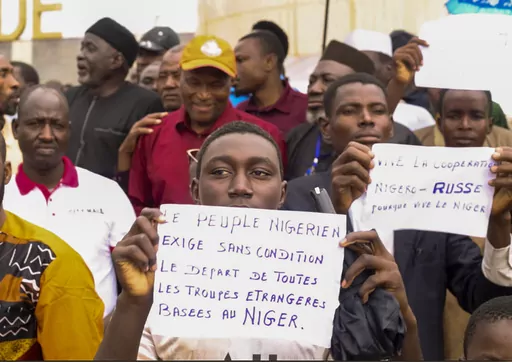 DE
LE PEUPLE NIGERIEN
EXIGE SANS CONDITION
LE DEPART DE TOUTES
LES TROUPES ETRANGERES
BASEES AU NIGER.
VIVE LA COOPERATION
NIGERO-RUSSE
POURQUE VIVE LE NIGER